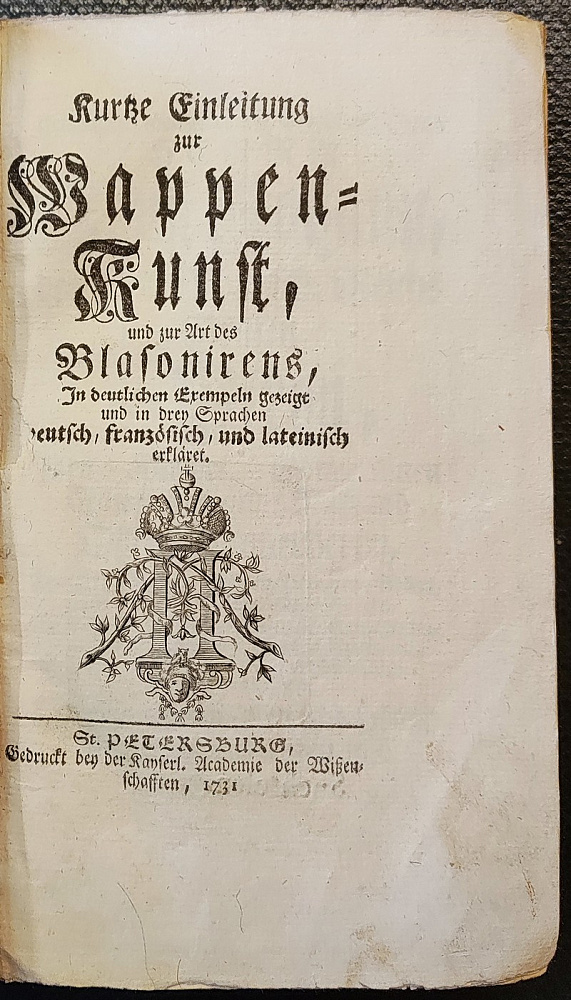 Kurtze Einleitung
zur
Wappen-
Kunst,
und zur Art des
Blasonirens,
In deutlichen Exempeln gezeigt
und in drey Sprachen
deutsch, französisch, und lateinisch
erkläret.
St. PETERSBURG,
Gedruckt bey der Kayserl. Academie der Wißen-
schafften, 1731